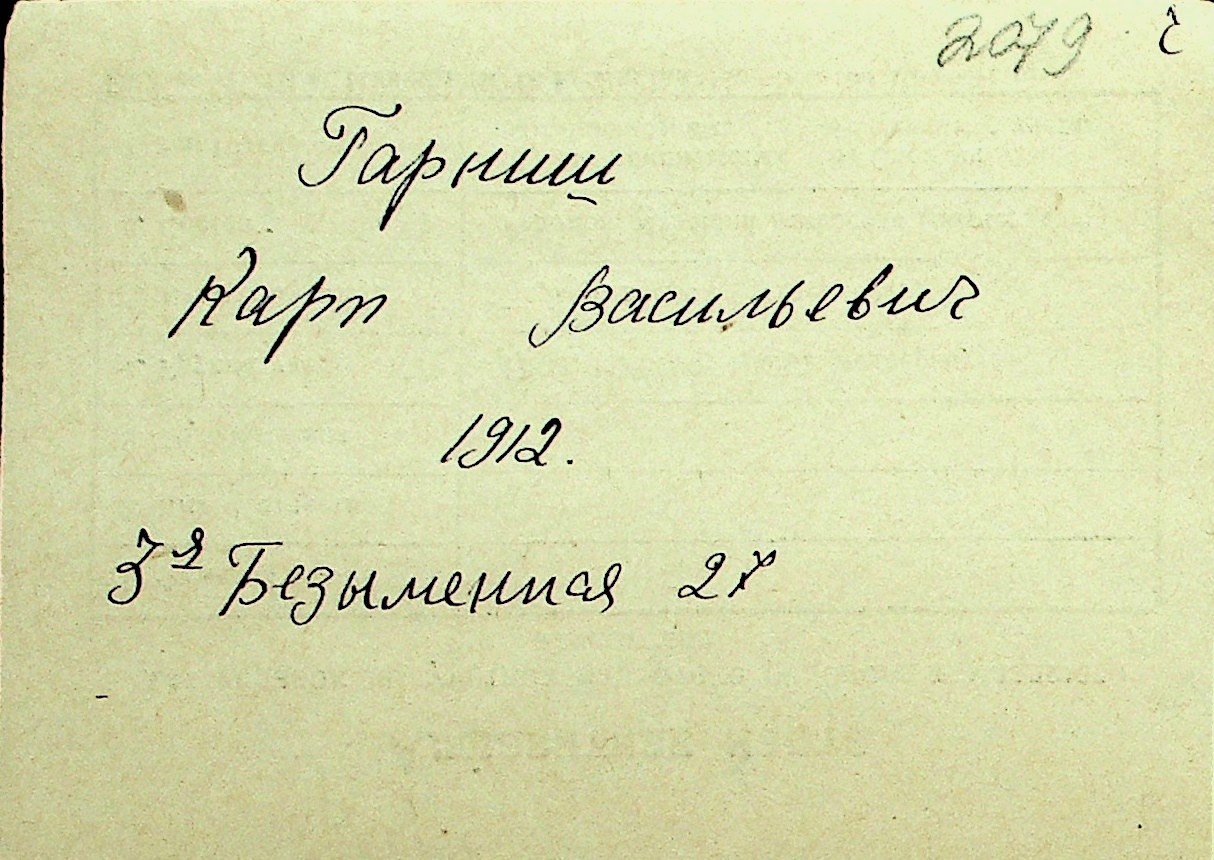 2079
Гарниш
Карп Васильевич
1912.
3я Безыменная 27